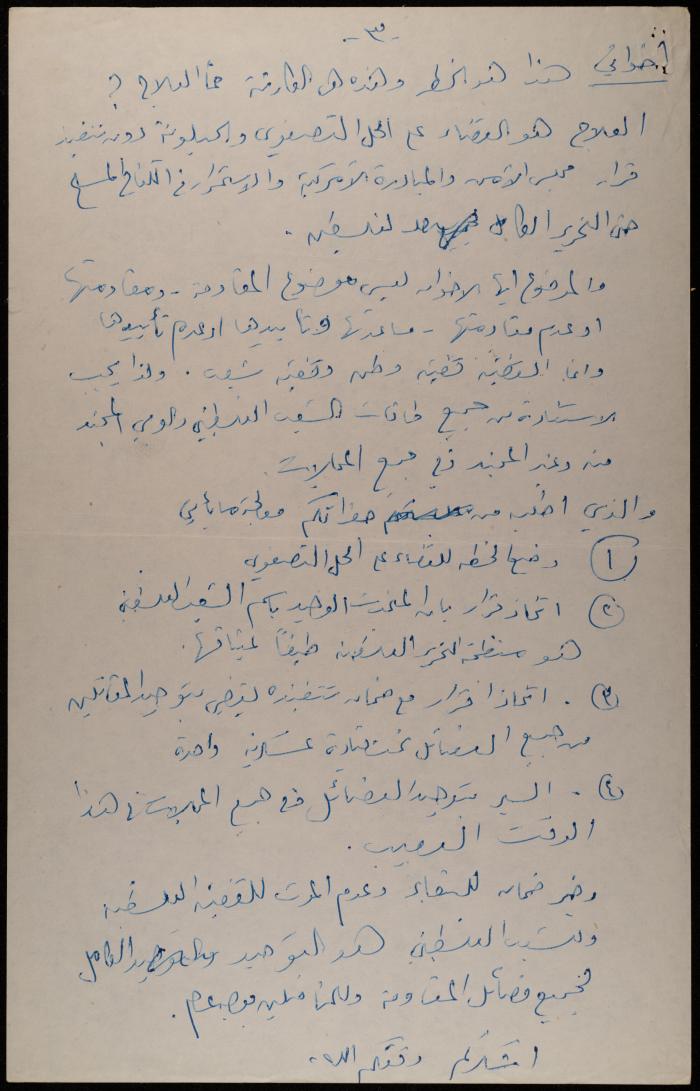 -٣-
أخواني هذا هو الخطر وهذه هي الفارقة فما العلاج ؟
العلاج هو القضاء على الحل التصفوي والحيلولة دون تنفيذ
قرار مجلس الأمن والمبادرة الأمريكية والاستمرار في الكفاح المسلح
حتى التحرير الكامل لفلسطين .
والموضوع ايها الاخوان ليس موضوع المقاومة - ومقاومتها
او عدم مقاومتها - مساعدتها وتأييدها او عدم تأييدها
وانما القضية قضية وطن وقضية شعب . ولذا يجب
الاستفادة من جميع طاقات الشعب الفلسطيني المجند
منه وغير المجند في جميع المجالات
والذي اطلبه من حضراتكم معالجة ما يأتي
١ وضع الخطة للقضاء على الحل التصفوي
٢ اتخاذ قرار بان المتحدث الوحيد باسم الشعب الفلسطيني
هو منظمة التحرير الفلسطينية طبقاً لميثاقها .
٣ . اتخاذ قرار مع ضمان تنفيذه يقضي بتوحيد المقاتلين
من جميع الفصائل تحت قيادة عسكرية واحدة
٤ . السير بتوحيد الفصائل في جميع المجالات في هذا
الوقت العصيب .
وخير ضمان للبقاء وعدم الموت للقضية الفلسطينية
وللشعب الفلسطيني هو التوحيد الكامل
لجميع فصائل المقاومة وللمناضلين
اشكركم وفقكم الله .